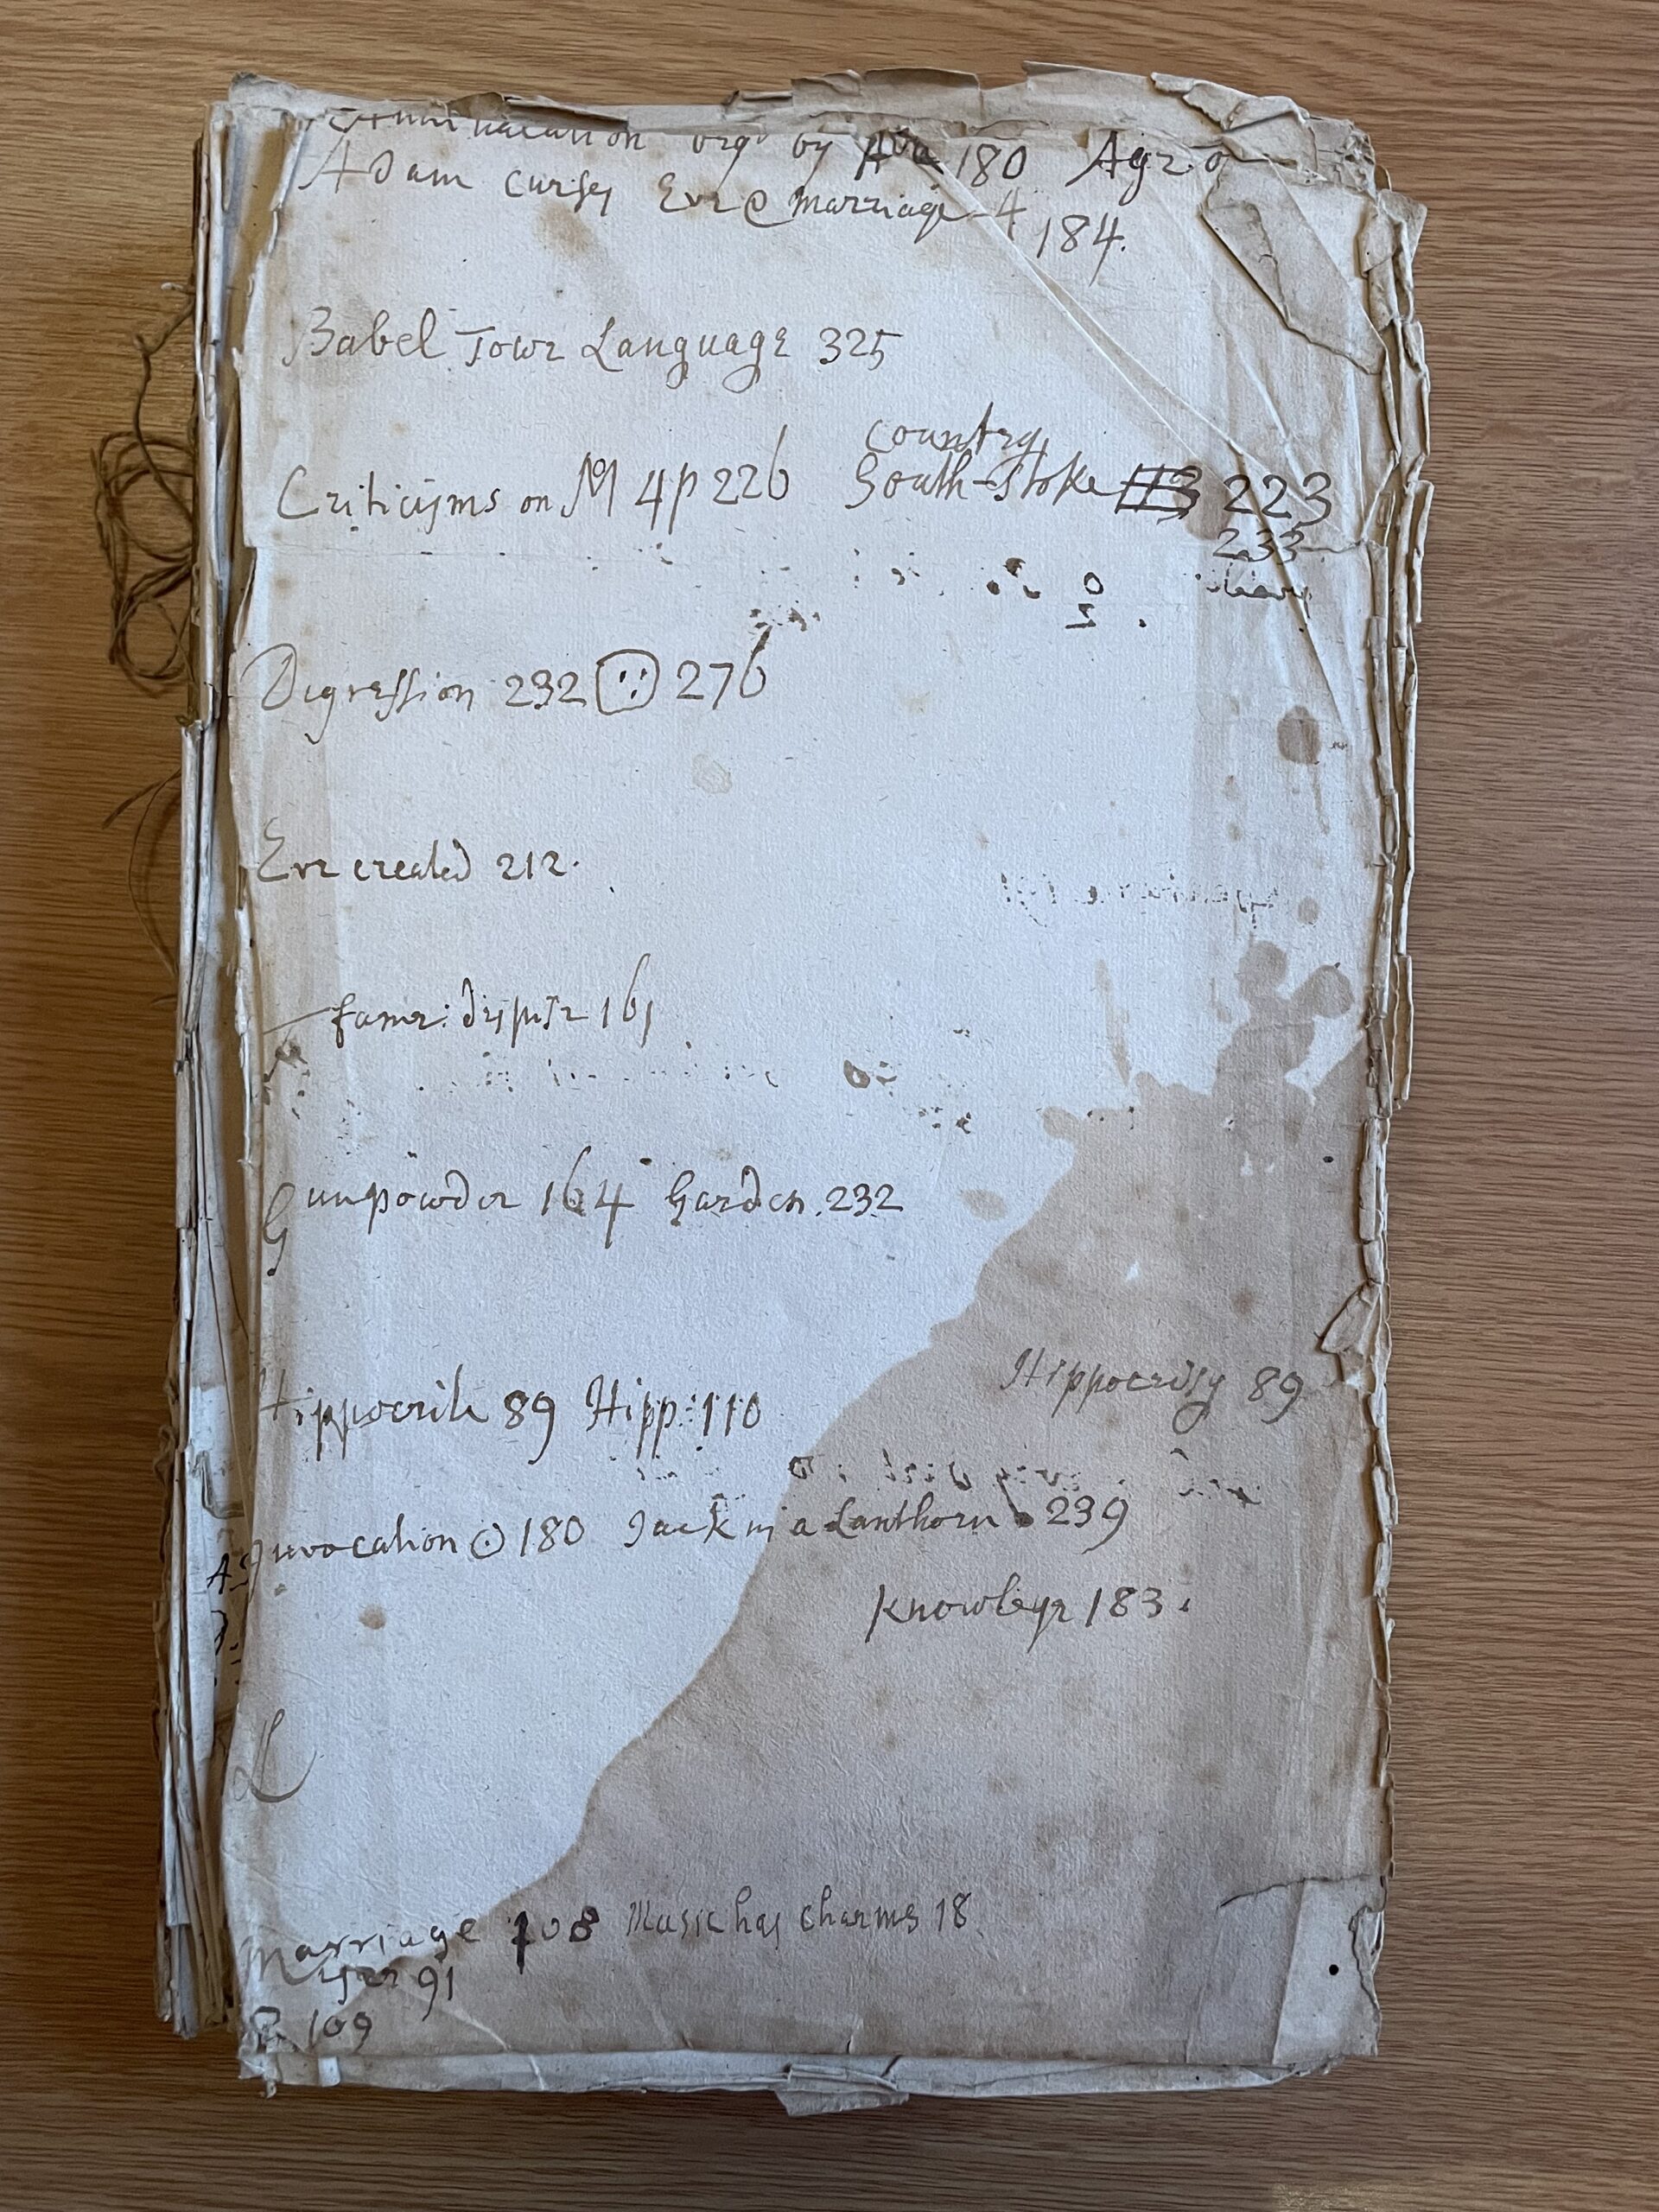 by 180
Adam curses Eve @ Marriage 4
184.
Babel Towr Language 325
Country
Criticisms on M 4 p 226 South-Stoke 223
233
Digression 232 276
Eve created 212.
fame: 161
Gunpowder 164 Garden 232
Hippocrite 89 Hipp: 110 Hippocrisy 89
Invocation 180 Jack in a Lanthorn 239
183.
L
Marriage 108 Musick has Charms 18
91
109